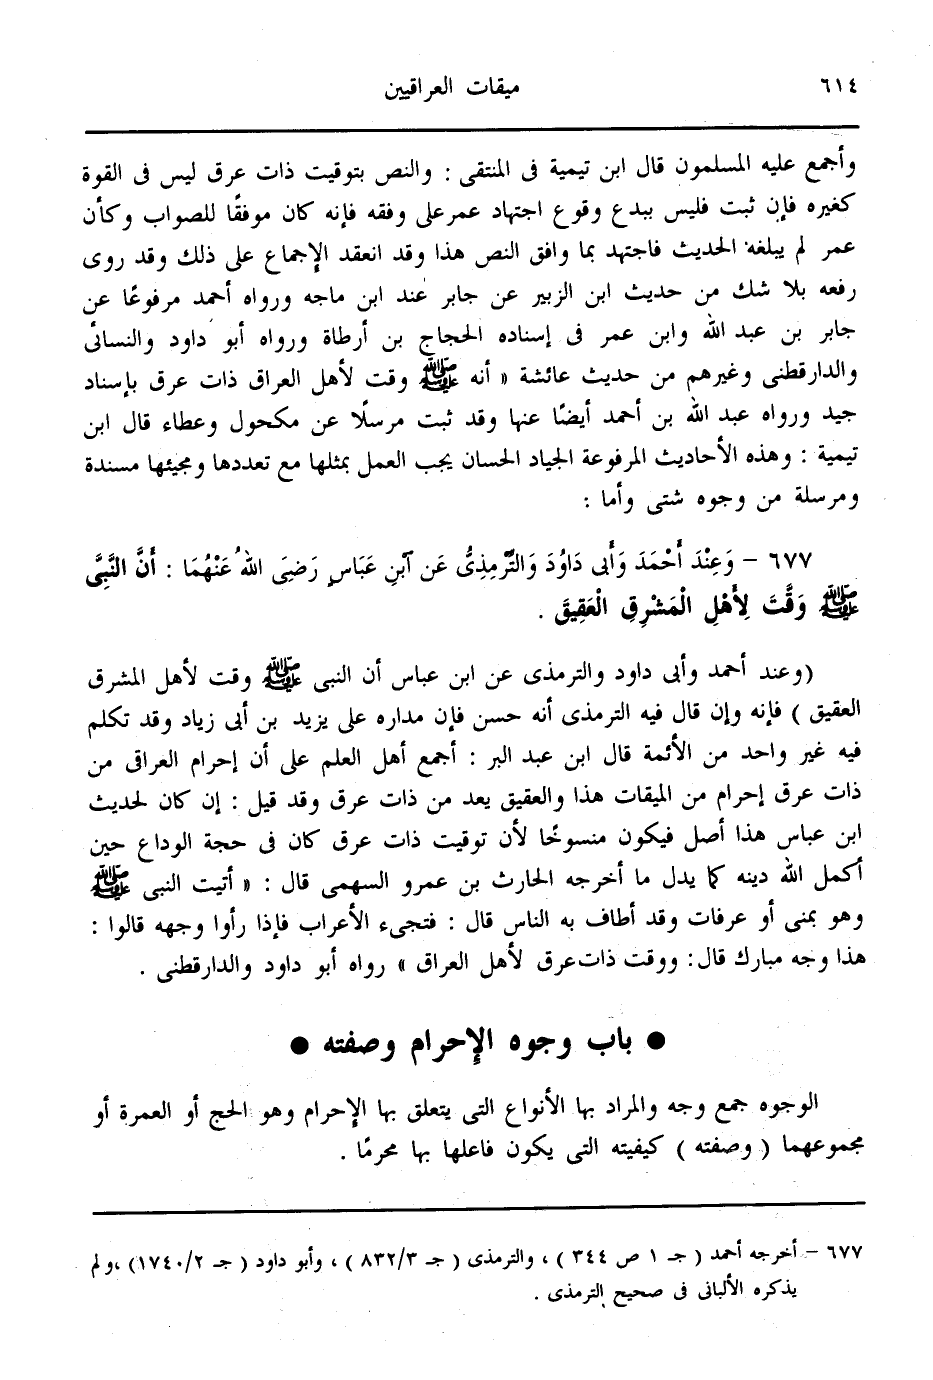 ٦١٤ ميقات العراقيين
وأجمع عليه المسلمون قال ابن تيمية فى المنتقى : والنص بتوقيت ذات عرق ليس فى القوة
كغيره فإن ثبت فليس ببدع وقوع اجتهاد عمر على وفقه فإنه كان موفقًا للصواب وكأن
عمر لم يبلغه الحديث فاجتهد بما وافق النص هذا وقد انعقد الإجماع على ذلك وقد روى
رفعه بلا شك من حديث ابن الزبير عن جابر عند ابن ماجه ورواه أحمد مرفوعًا عن
جابر بن عبد الله وابن عمر فى إسناده الحجاج بن أرطاة ورواه أبو داود والنسائى
والدارقطنى وغيرهم من حديث عائشة « أنه ﷺ وقت لأهل العراق ذات عرق بإسناد
جيد ورواه عبد الله بن أحمد أيضًا عنها وقد ثبت مرسلًا عن مكحول وعطاء قال ابن
تيمية : وهذه الأحاديث المرفوعة الجياد الحسان يجب العمل بمثلها مع تعددها ومجيئها مسندة
ومرسلة من وجوه شتى وأما :
٦٧٧ – وَعِنْدَ أَحْمَدَ وَأَبى دَاوُدَ وَالتِّرْمِذِىُّ عَن آبنِ عَبَاسٍ رَضِىَ اللهُ عَنْهُمَا : أَنَّ النَّبِىَّ
ﷺ وَقَّتَ لِأَهْلِ الْمَشْرِقِ الْعَقِيقَ .
(وعند أحمد وأبى داود والترمذى عن ابن عباس أن النبى ﷺ وقت لأهل المشرق
العقيق ) فإنه وإن قال فيه الترمذى أنه حسن فإن مداره على يزيد بن أبى زياد وقد تكلم
فيه غير واحد من الأئمة قال ابن عبد البر : أجمع أهل العلم على أن إحرام العراقى من
ذات عرق إحرام من الميقات هذا والعقيق يعد من ذات عرق وقد قيل : إن كان لحديث
ابن عباس هذا أصل فيكون منسوخًا لأن توقيت ذات عرق كان فى حجة الوداع حين
أكمل الله دينه كما يدل ما أخرجه الحارث بن عمرو السهمى قال : « أتيت النبى ﷺ
وهو بمنى أو عرفات وقد أطاف به الناس قال : فتجىء الأعراب فإذا رأوا وجهه قالوا :
هذا وجه مبارك قال: ووقت ذات عرق لأهل العراق » رواه أبو داود والدارقطنى .
● باب وجوه الإحرام وصفته ●
الوجوه جمع وجه والمراد بها الأنواع التى يتعلق بها الإحرام وهو الحج أو العمرة أو
مجموعهما ( وصفته ) كيفيته التى يكون فاعلها بها محرمًا .
٦٧٧ – أخرجه أحمد ( جـ ١ ص ٣٤٤ ) ، والترمذى ( جـ ٨٣٢/٣ ) ، وأبو داود ( جـ ١٧٤٠/٢) ،ولم
يذكره الألبانى فى صحيح الترمذى .